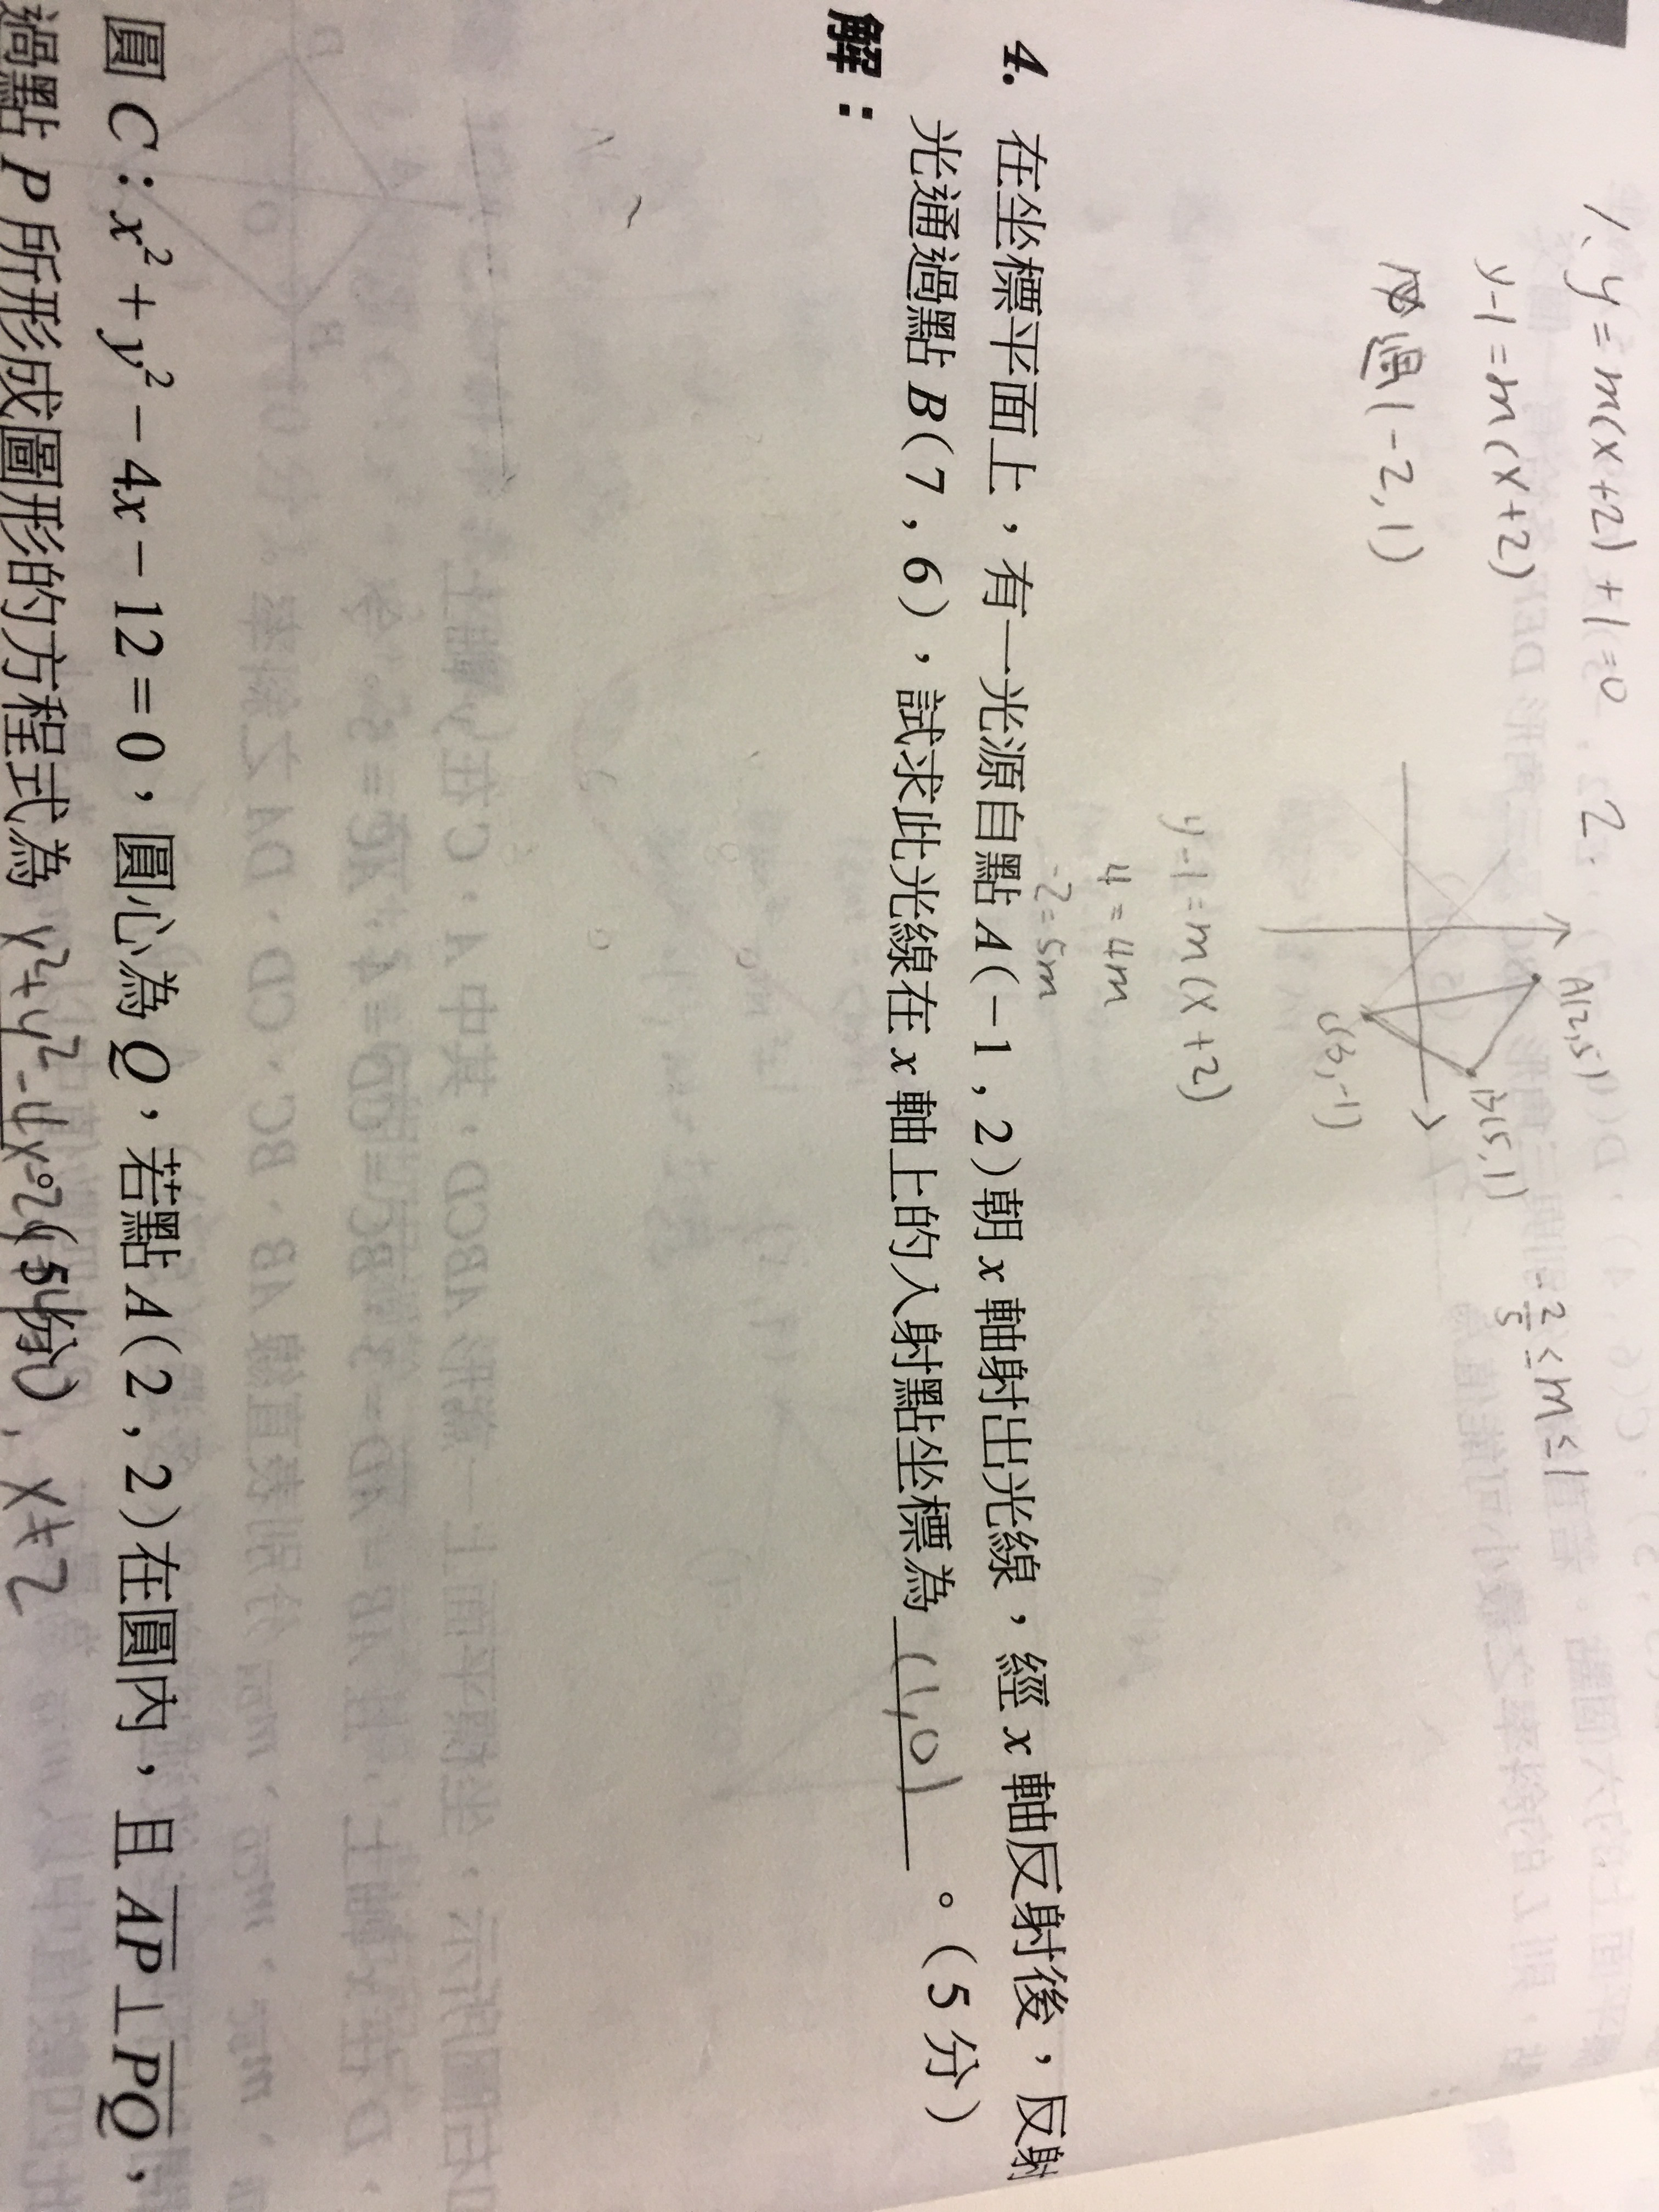 1、y=m(x+2)+1=0
2.
y-1=m(x+2)
必過(-2,1)
A(2,5)
B(5,1)
C(3,-1)
-2/5 ≤ m ≤ 1
y-1=m(x+2)
4=4m
-2=5m
4. 在坐標平面上，有一光源自點 A(-1,2)朝 x 軸射出光線，經 x 軸反射後，反射
光通過點 B(7,6)，試求此光線在 x 軸上的入射點坐標為 (1,0) 。(5分)
解：
圓 C：x²+y²-4x-12=0，圓心為 Q，若點 A(2,2)在圓內，且 AP⊥PQ，
過點 P 所形成圖形的方程式為
(5分)
x≠2